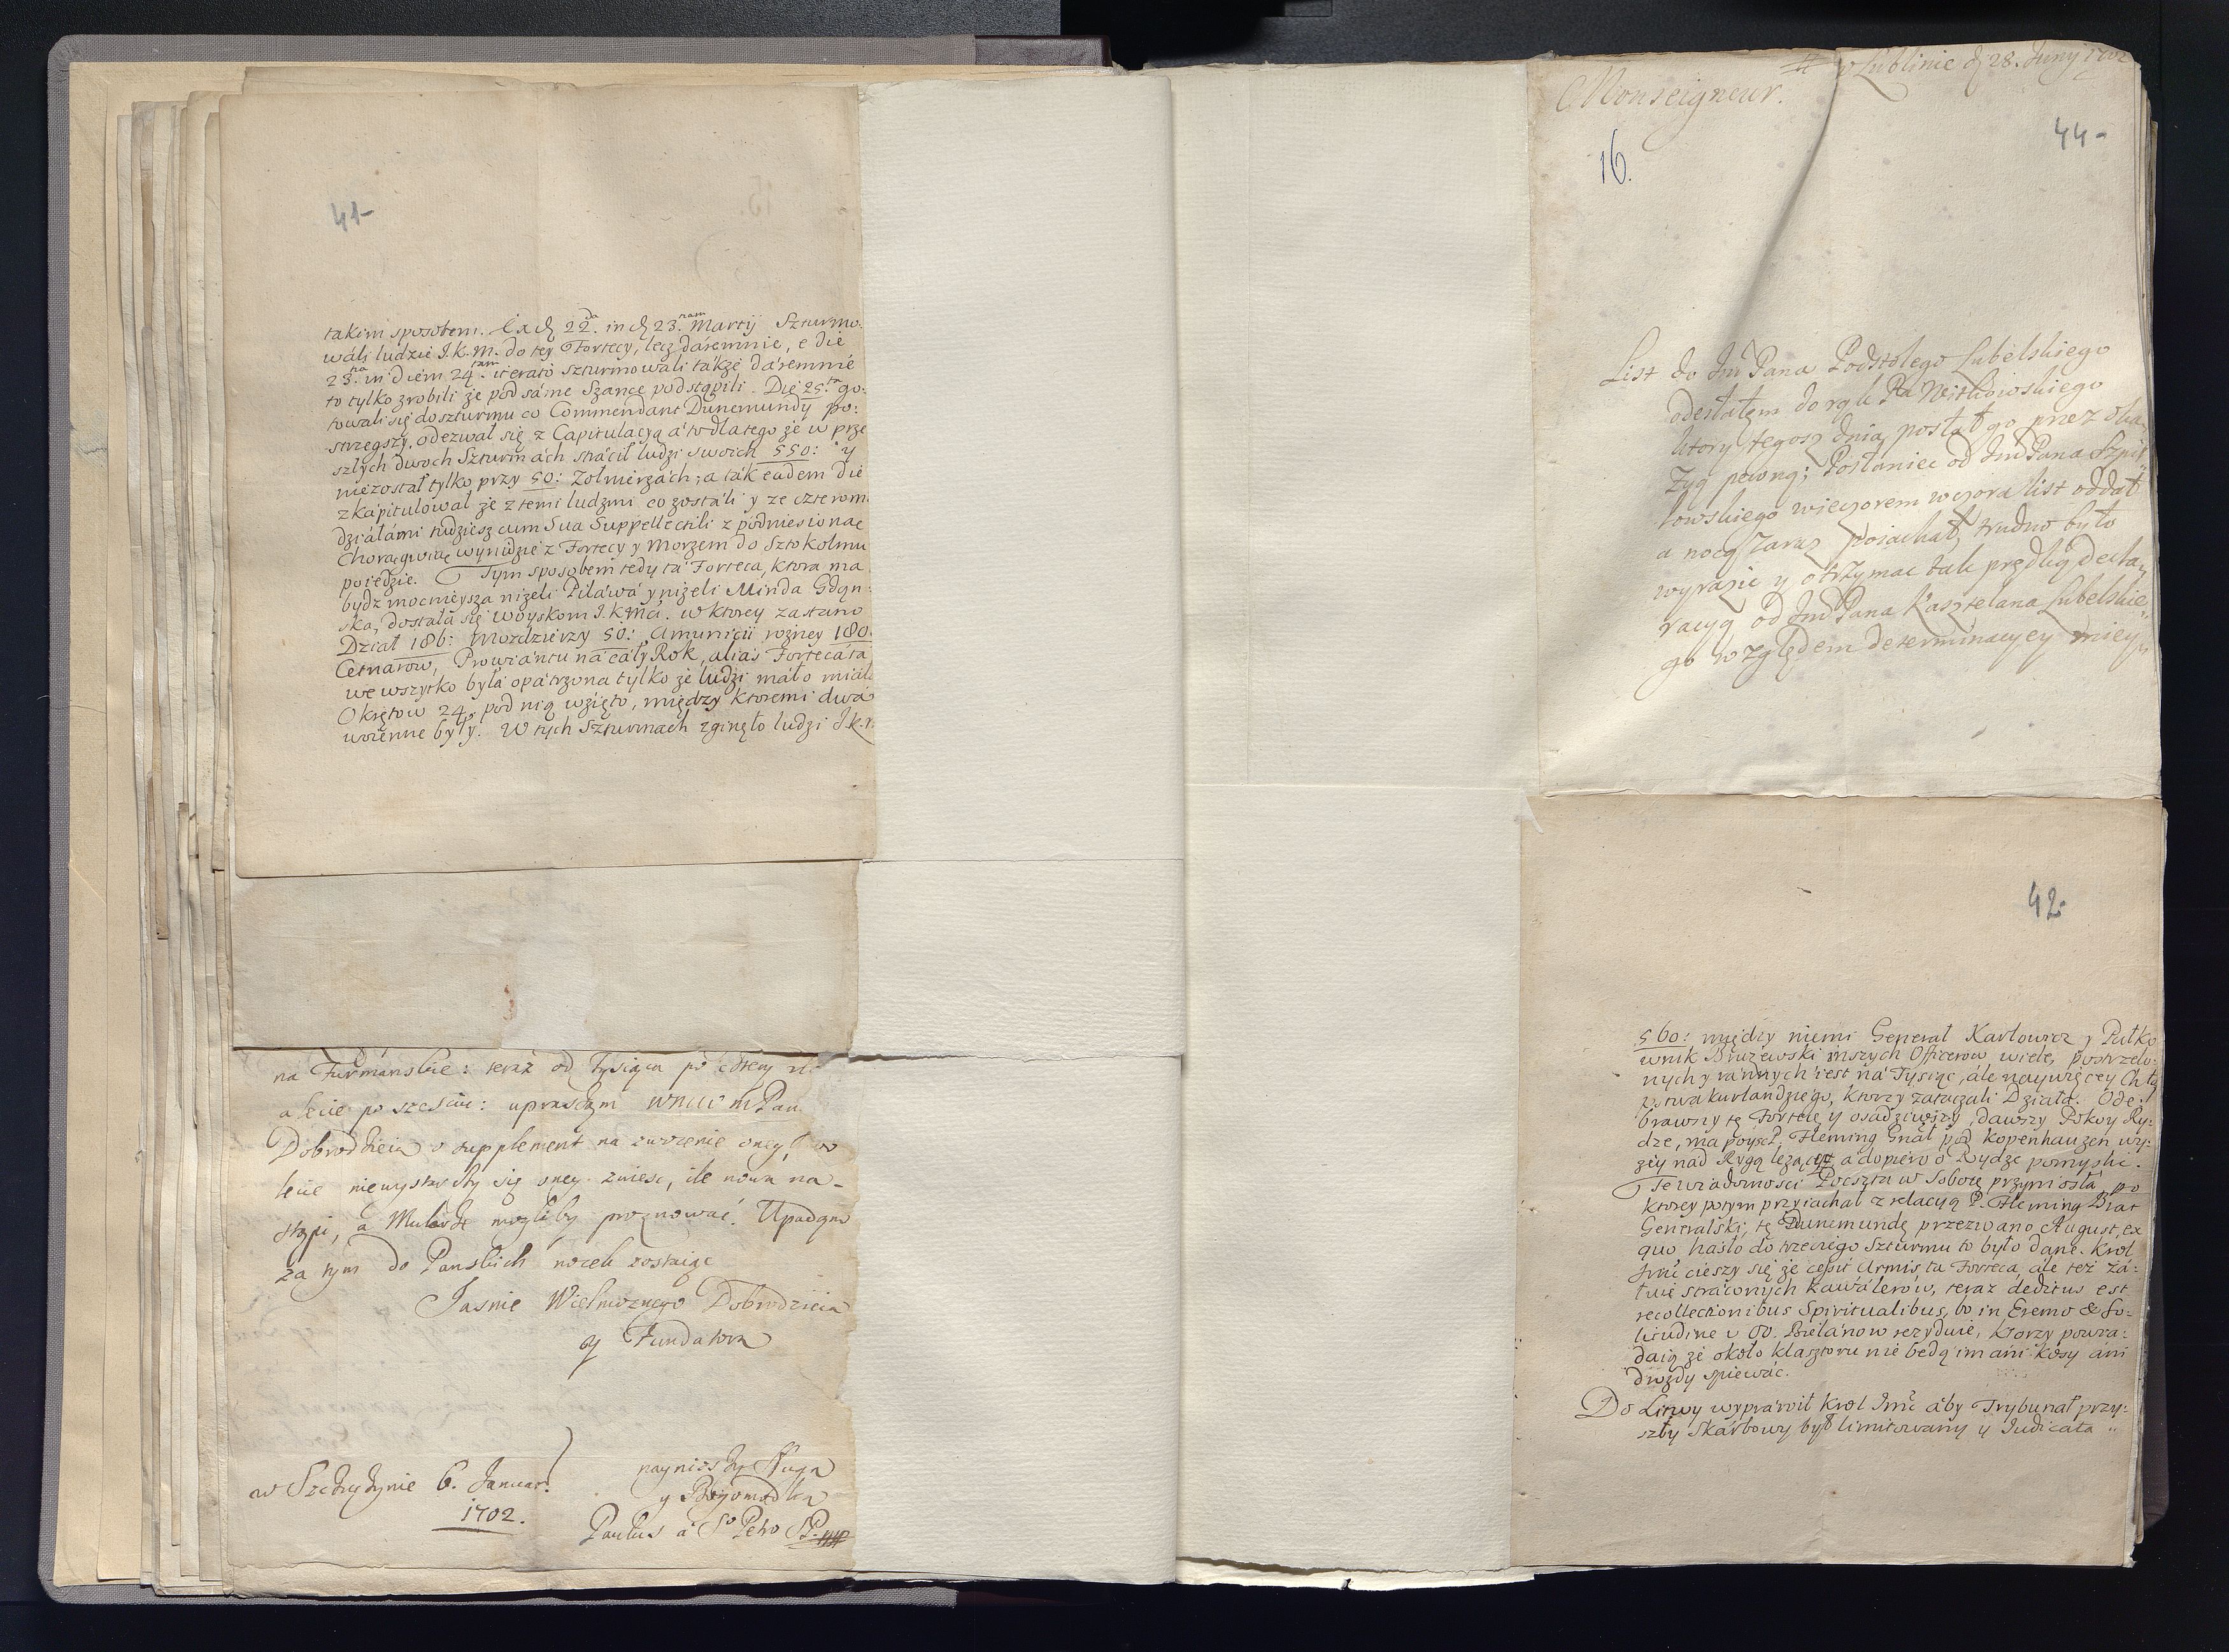 41-
takim sposobem. Ex d 22da. in d 23.tiam Martij Szturmo-
wáli ludzie J.K.M. do tey Fortecy, lecz dáremnie, e die
23tia in diem 24.tam iterato szturmowali tákże dáremnie
to tylko zrobili że pod sáme Szance podstąpili. Die 25.ta go-
towali się do szturmu co Commendant Dunemundy po:
strzegszy, odezwał się z Capitulacyą á to dlatego że w prze
szłych dwoch Szturmách strácił ludzi swoich 550: y
niezostał tylko przy 50: Zołnierzách; a ták eadem die
zkápitulował że z temi ludzmi co zostáli y ze czterema
działámi tudziesz cum Sua Suppellectili z podniesioną
Chorągwią wynidzie z Fortecy y Morzem do Sztokolmu
poiedzie. Tym sposobem tedy tá Forteca, ktora ma
bydz mocnieysza niżeli Piláwá y niżeli Minda Gdąn:
ska, dostała się woyskom J.K.Mci. w ktorey zastano
Dział 186: Mozdzierzy 50: Amunicii rożney 180.
Cetnarow, Prowiántu ná cáły Rok, aliás Fortecá tá
we wszytko byłá opátrzona tylko że ludzi máło miáłá
Okrętow 24. pod nią wzięto, między ktoremi dwa
woienne były. W tych Szturmach zginęło ludzi J.K.M.
na Furmanskie: teraz od Tysiąca po
alecie po szesciu: upraszam WMM Pan
Dobrodzieia o supplement na zwozenie oney,
lecie niewystarsby się oney zwiesc, ile nowa na-
stąpi, a Mularze mogliby proznować. Upadam
za tym do Panskich nozek zostaiąc
Jasnie Wielmoznego Dobrodzieia
y Fundatora
w Szczuczynie 6. Januar.
1702.
naynizszy Sługa
y Bogomodlca
Paulus a So Petro SP.
w Lublinie d 28. Juny 1702
Monseigneur.
44-
16.
List do Jm Pana Podstolego Lubelskiego
odesłałem do rąk Pa Witkowskiego
ktory tegosz dnia posłał go przez oka-
zyą pewną; Posłaniec od Jm Pana Szpil
kowskiego wieczorem wczora list oddał
a nocą zaraz poiachał, trudno było
wyrazic y otrzymac tak prędką dekla-
racyą od Jm Pana Kasztelana Lubelskie-
go względem determinacyey miey
42-
560: między niemi Generał Karłowicz y Pułko
wnik Bruzewski inszych Officerow wiele, postrzelo-
nych y ránnych iest ná Tysiąc, ále naywięcey Chło
pstwa Kurlandzkiego, ktorzy zataczali Działa. Ode:
brawszy tę Fortecę y osadziwszy, dawszy Pokoy Ry-
dze, ma poysć P. Fleming Gnał pod Kopenhauzen wy-
żey nad Rygą leżące a dopiero o Rydze pomyśli.
Te wiadomosci Poczta w Sobotę przyniosła po
ktorey potym przyiachał z relacyą P. Fleming Brat
Generalski; tę Dunemundę przezwano August, ex
quo hasło do trzeciego Szturmu to było dane. Krol
Jmć cieszy się że cessit Armis ta Forteca, ale też żá-
łuie stráconych Kawálerow, teraz deditus est
recollectionibus Spiritualibus, bo in Eremo & So-
litudine u OO. Bielánow rezyduie, ktorzy powia-
daią że około klasztoru nie będą im áni kosy áni
drozdy spiewác.
Do Litwy wypráwił Krol Jmć áby Trybunał przy-
szły Skárbowy był limitowany y Judicata